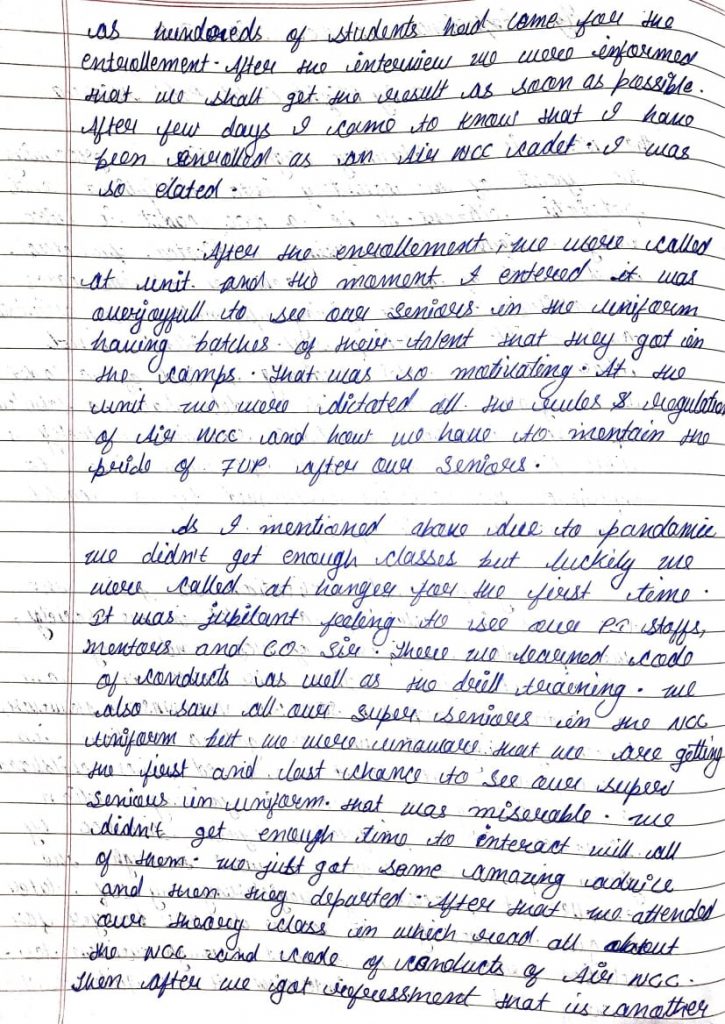 as hundoreds of students had come for the
enterollement. After the interview we were informed
that we shall get the result as soon as possible.
After few days I came to know that I have
been enrolled as an Air NCC cadet. I was
so elated.
After the enrollement, we were called
at unit and the moment I entered it was
overjoyfull to see our seniors in the uniform
having batches of their talent that they got in
the camps. That was so motivating. At the
unit we were dictated all the rules & regulation
of Air NCC and how we have to mentain the
pride of 7UP after our seniors.
As I mentioned above due to pandamic
we didn't get enough classes but luckily we
were called at hanger for the first time.
It was jubilant feeling to see our PI staffs,
mentors and CO Sir. There we learned code
of conducts as well as the drill training. we
also saw all our super seniors in the NCC
uniform but we were unaware that we are getting
the first and last chance to see our super
seniors in uniform. that was miserable. we
didn't get enough time to interact will all
of them. we just got some amazing advice
and then they departed. After that we attended
our theory class in which read all about
the NCC and code of conducts of Air NCC.
Then after we got refressment that is another